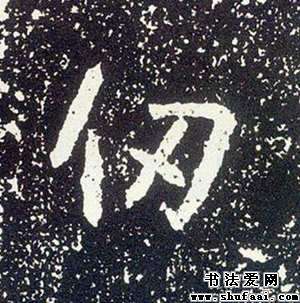 仞
书法爱网
www.shufaai.com